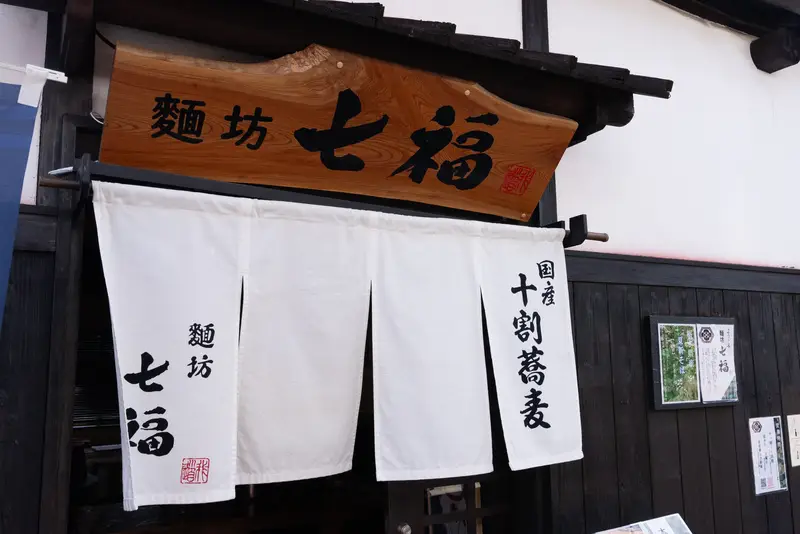 麵坊 七福
国産
十割蕎麦
麵坊
七福
麵坊
七福